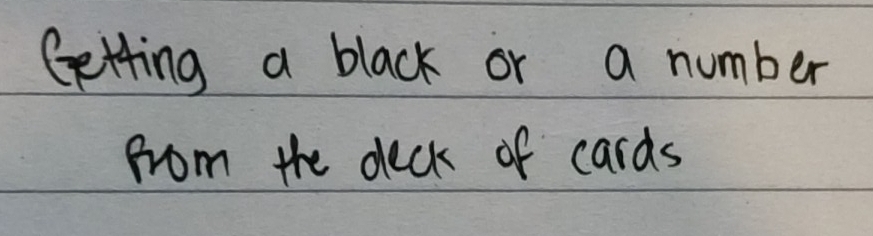 Getting a black or a number
from the deck of cards